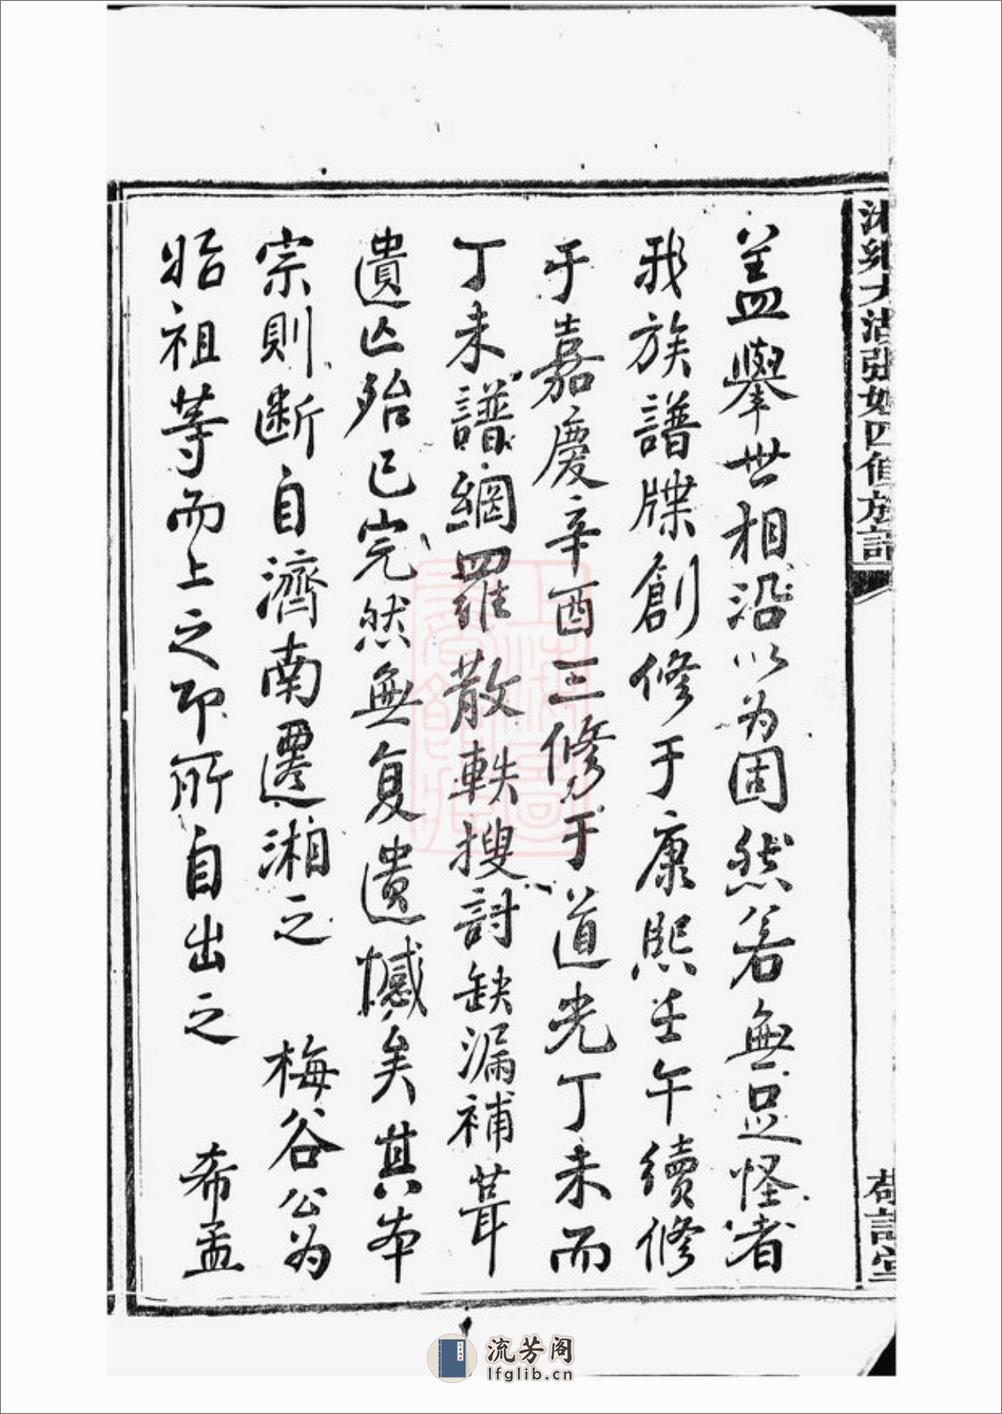 湘鄉大沽張姓四修族譜
蓋舉世相沿以为固然若無足怪者
我族譜牒創修于康熙壬午續修
于嘉慶辛酉三修于道光丁未而
丁未譜網羅散軼搜討缺漏補葺
遺亾殆已完然無复遺憾矣其本
宗則断自濟南遷湘之 梅谷公为
始祖等而上之即所自出之 希孟
流芳阁
lfglib.cn